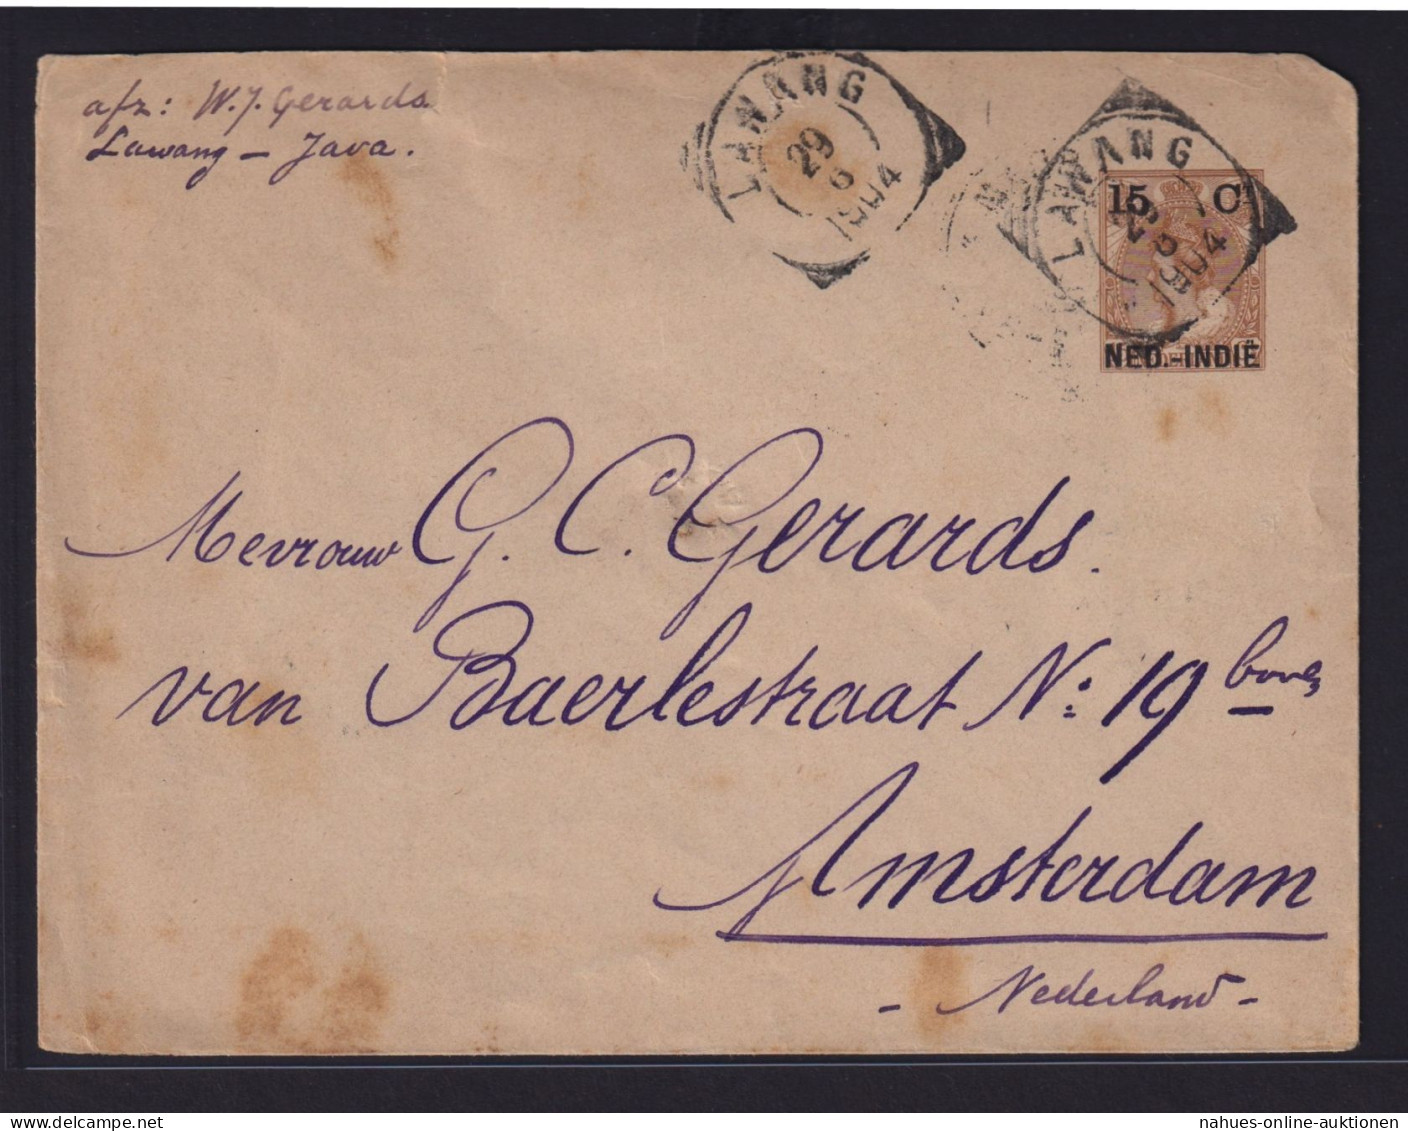 afz: W. J. Gerards
Lawang – Java.
LAWANG
29
6
1904
LAWANG
29
6
1904
15 Ct
NED.-INDIË
Mevrouw G. C. Gerards.
van Baerlestraat No: 19 boven
Amsterdam
- Nederland -
nahues-online-auktionen